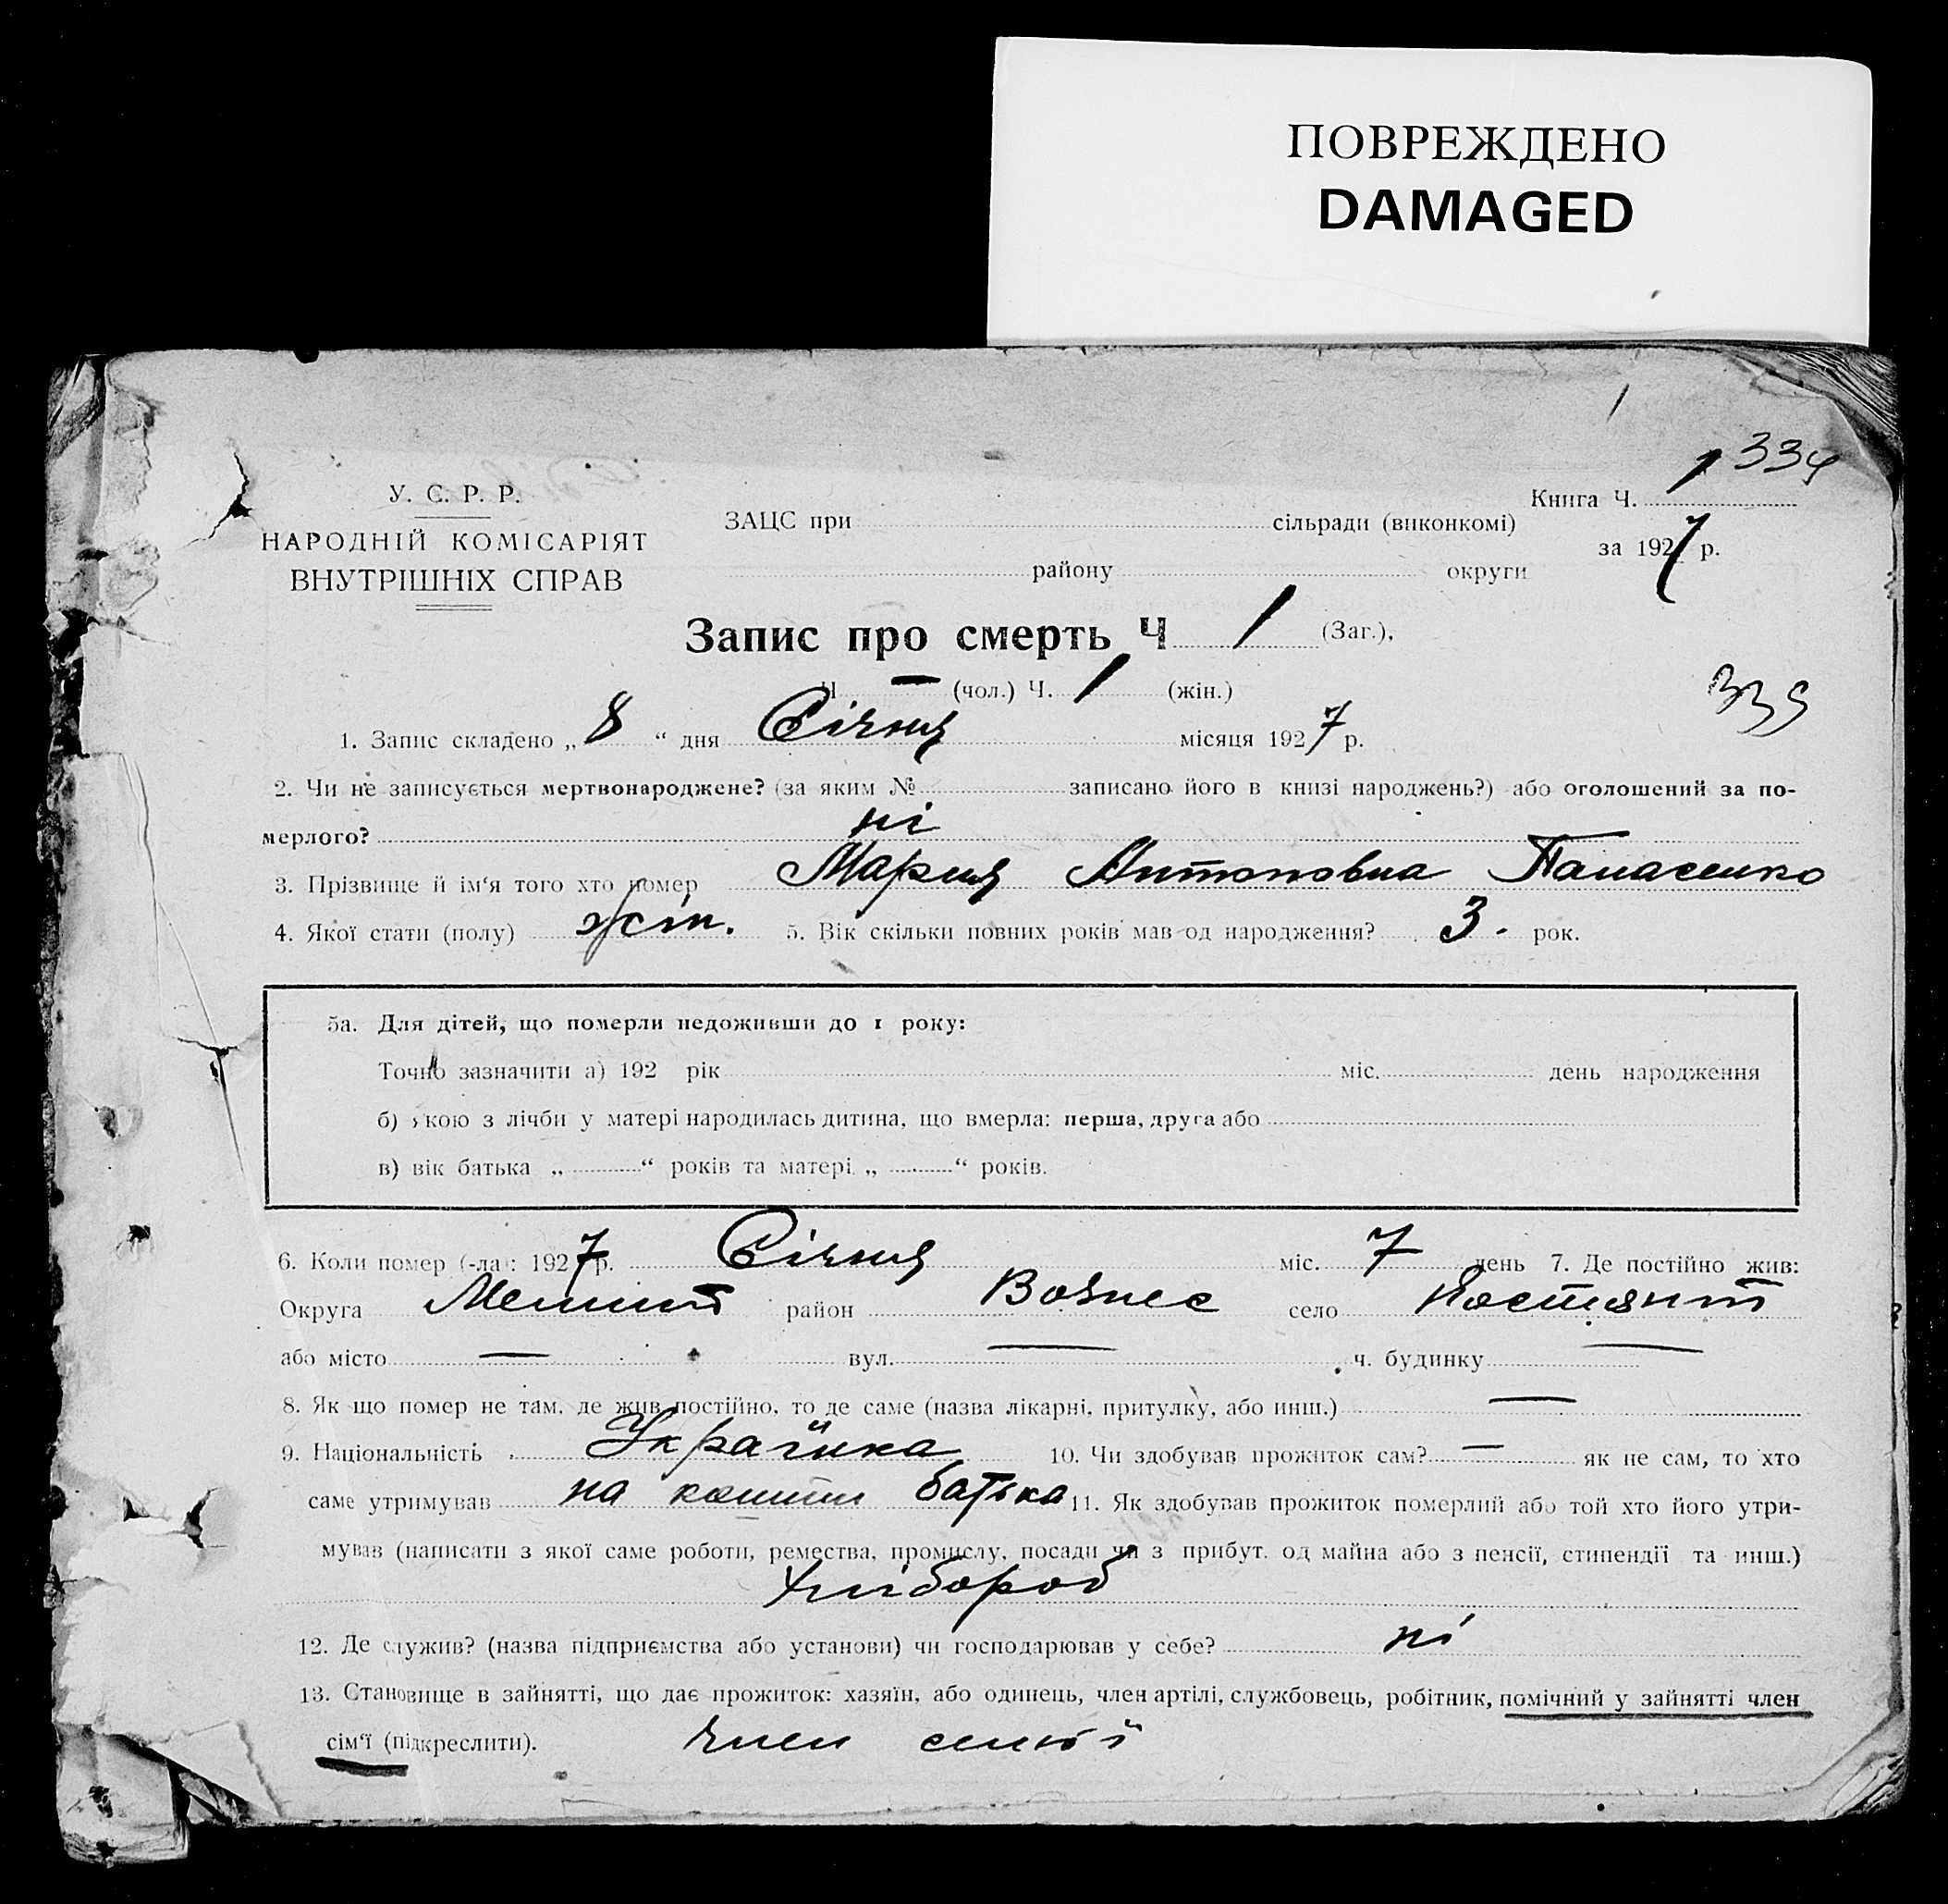 ПОВРЕЖДЕНО
DAMAGED
1
334
У. С. Р. Р.
НАРОДНІЙ КОМІСАРІЯТ
ВНУТРІШНІХ СПРАВ
ЗАЦС при сільради (виконкомі)
району округи
Книга Ч. 1
за 1927 р.
Запис про смерть Ч 1 (Заг.),
Ч — (чол.) Ч. 1 (жін.)
339
1. Запис складено „ 8 “ дня Січня місяця 1927 р.
2. Чи не записується мертвонароджене? (за яким № записано його в книзі народжень?) або оголошений за по-
мерлого? ні
3. Прізвище й ім‘я того хто помер Мария Антоновна Панасенко
4. Якої стати (полу) жін. 5. Вік скільки повних років мав од народження? 3. рок.
5а. Для дітей, що померли недоживши до 1 року:
Точно зазначити а) 192 рік міс. день народження
б) якою з лічби у матері народилась дитина, що вмерла: перша, друга або
в) вік батька „ “ років та матері „ “ років.
6. Коли помер (-ла): 1927 р. Січня міс. 7 день 7. Де постійно жив:
Округа Мелит район Вознес село Костянт
або місто — вул. — ч. будинку —
8. Як що помер не там, де жив постійно, то де саме (назва лікарні, притулку, або инш.) —
9. Національність Українка 10. Чи здобував прожиток сам? — як не сам, то хто
саме утримував на кошти батька 11. Як здобував прожиток померлий або той хто його утри-
мував (написати з якої саме роботи, ремества, промислу, посади чи з прибут. од майна або з пенсії, стипендії та инш.)
хлібороб
12. Де служив? (назва підприємства або установи) чи господарював у себе? ні
13. Становище в зайнятті, що дає прожиток: хазяїн, або одинець, член артілі, службовець, робітник, помічний у зайнятті член
сім‘ї (підкреслити). член симї